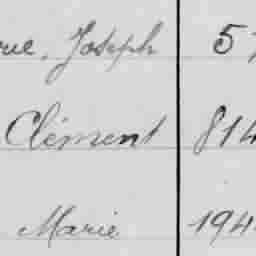 rue, Joseph 57
Clément 814
Marie 194